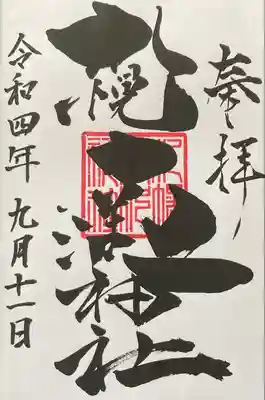 奉拝
札幌
神社
令和四年九月十一日